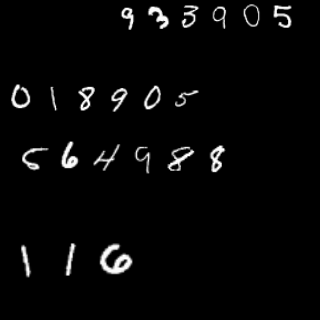 933905
018905
564988
116